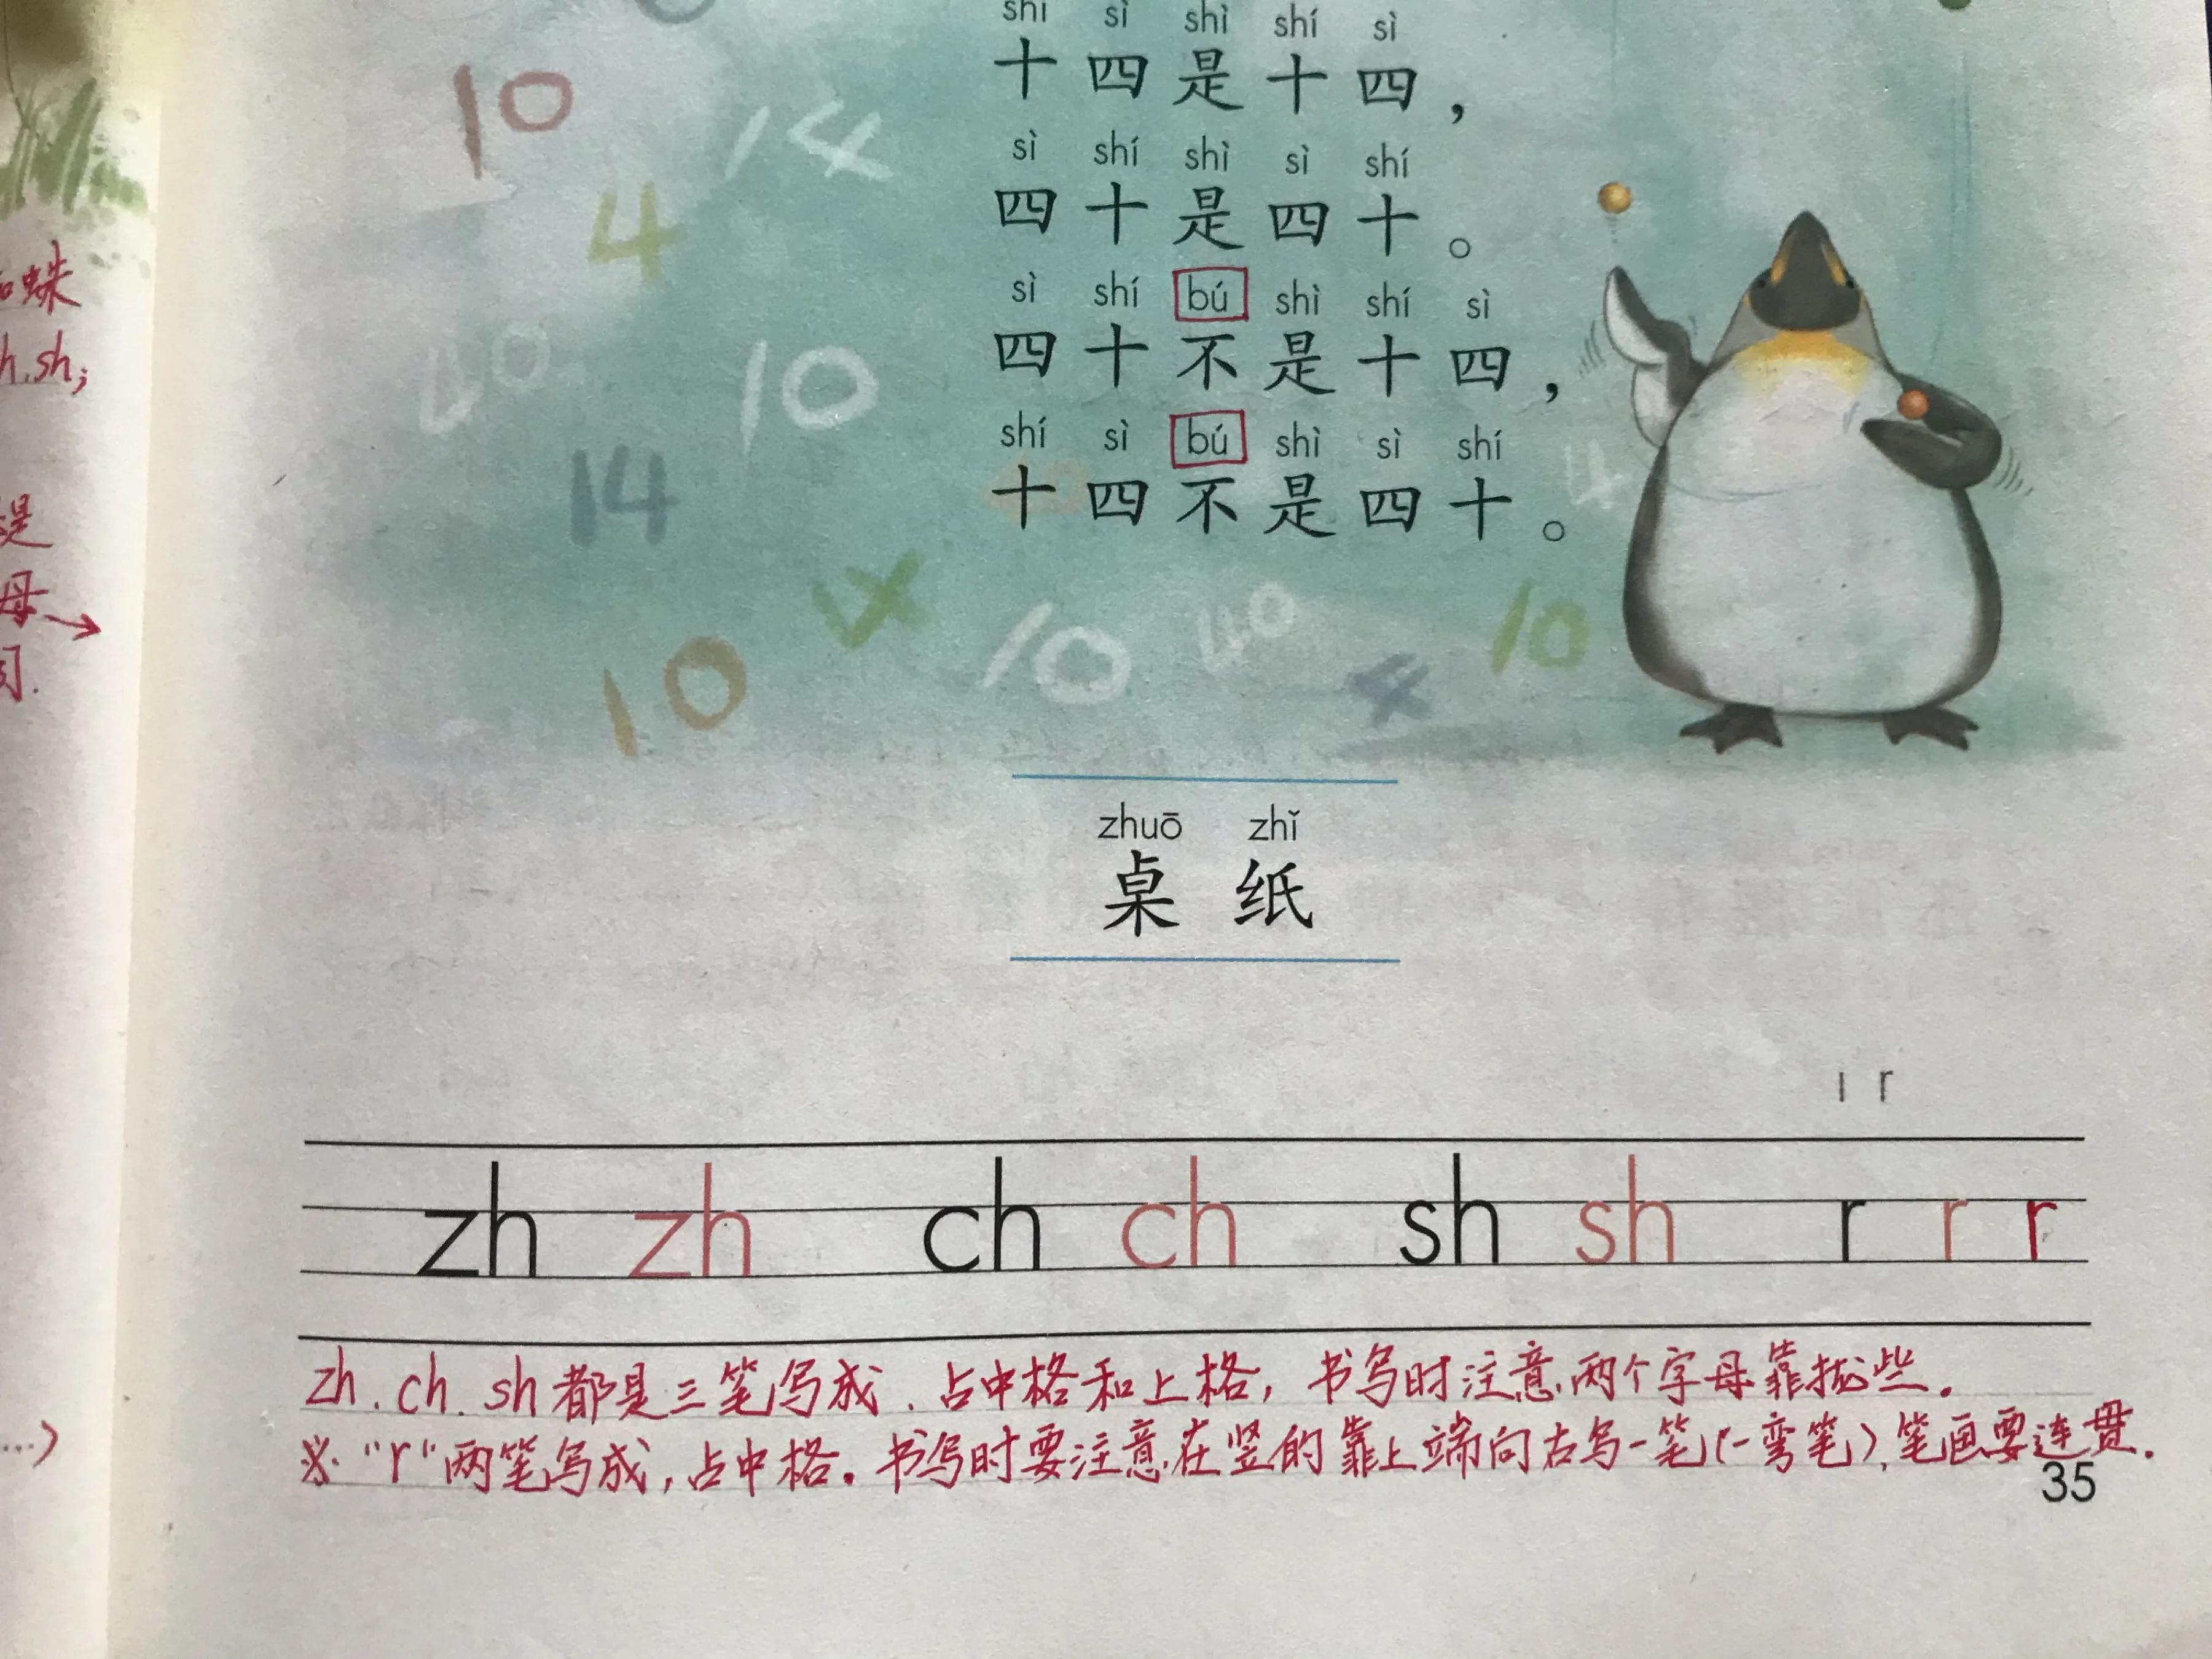 shí sì shì shí sì
十四是十四，
sì shí shì sì shí
四十是四十。
sì shí bú shì shí sì
四十不是十四，
shí sì bú shì sì shí
十四不是四十。
10
14
4
40
10
14
4
4
10
40
10
10
4
zhuō zhǐ
桌 纸
ı r
zh zh ch ch sh sh r r r
zh.ch.sh都是三笔写成.占中格和上格,书写时注意.两个字母靠拢些.
※"r"两笔写成,占中格.书写时要注意.在竖的靠上端向右写一笔(一弯笔).笔画要连贯.
35
蛛
h.sh;
是
母→
…)